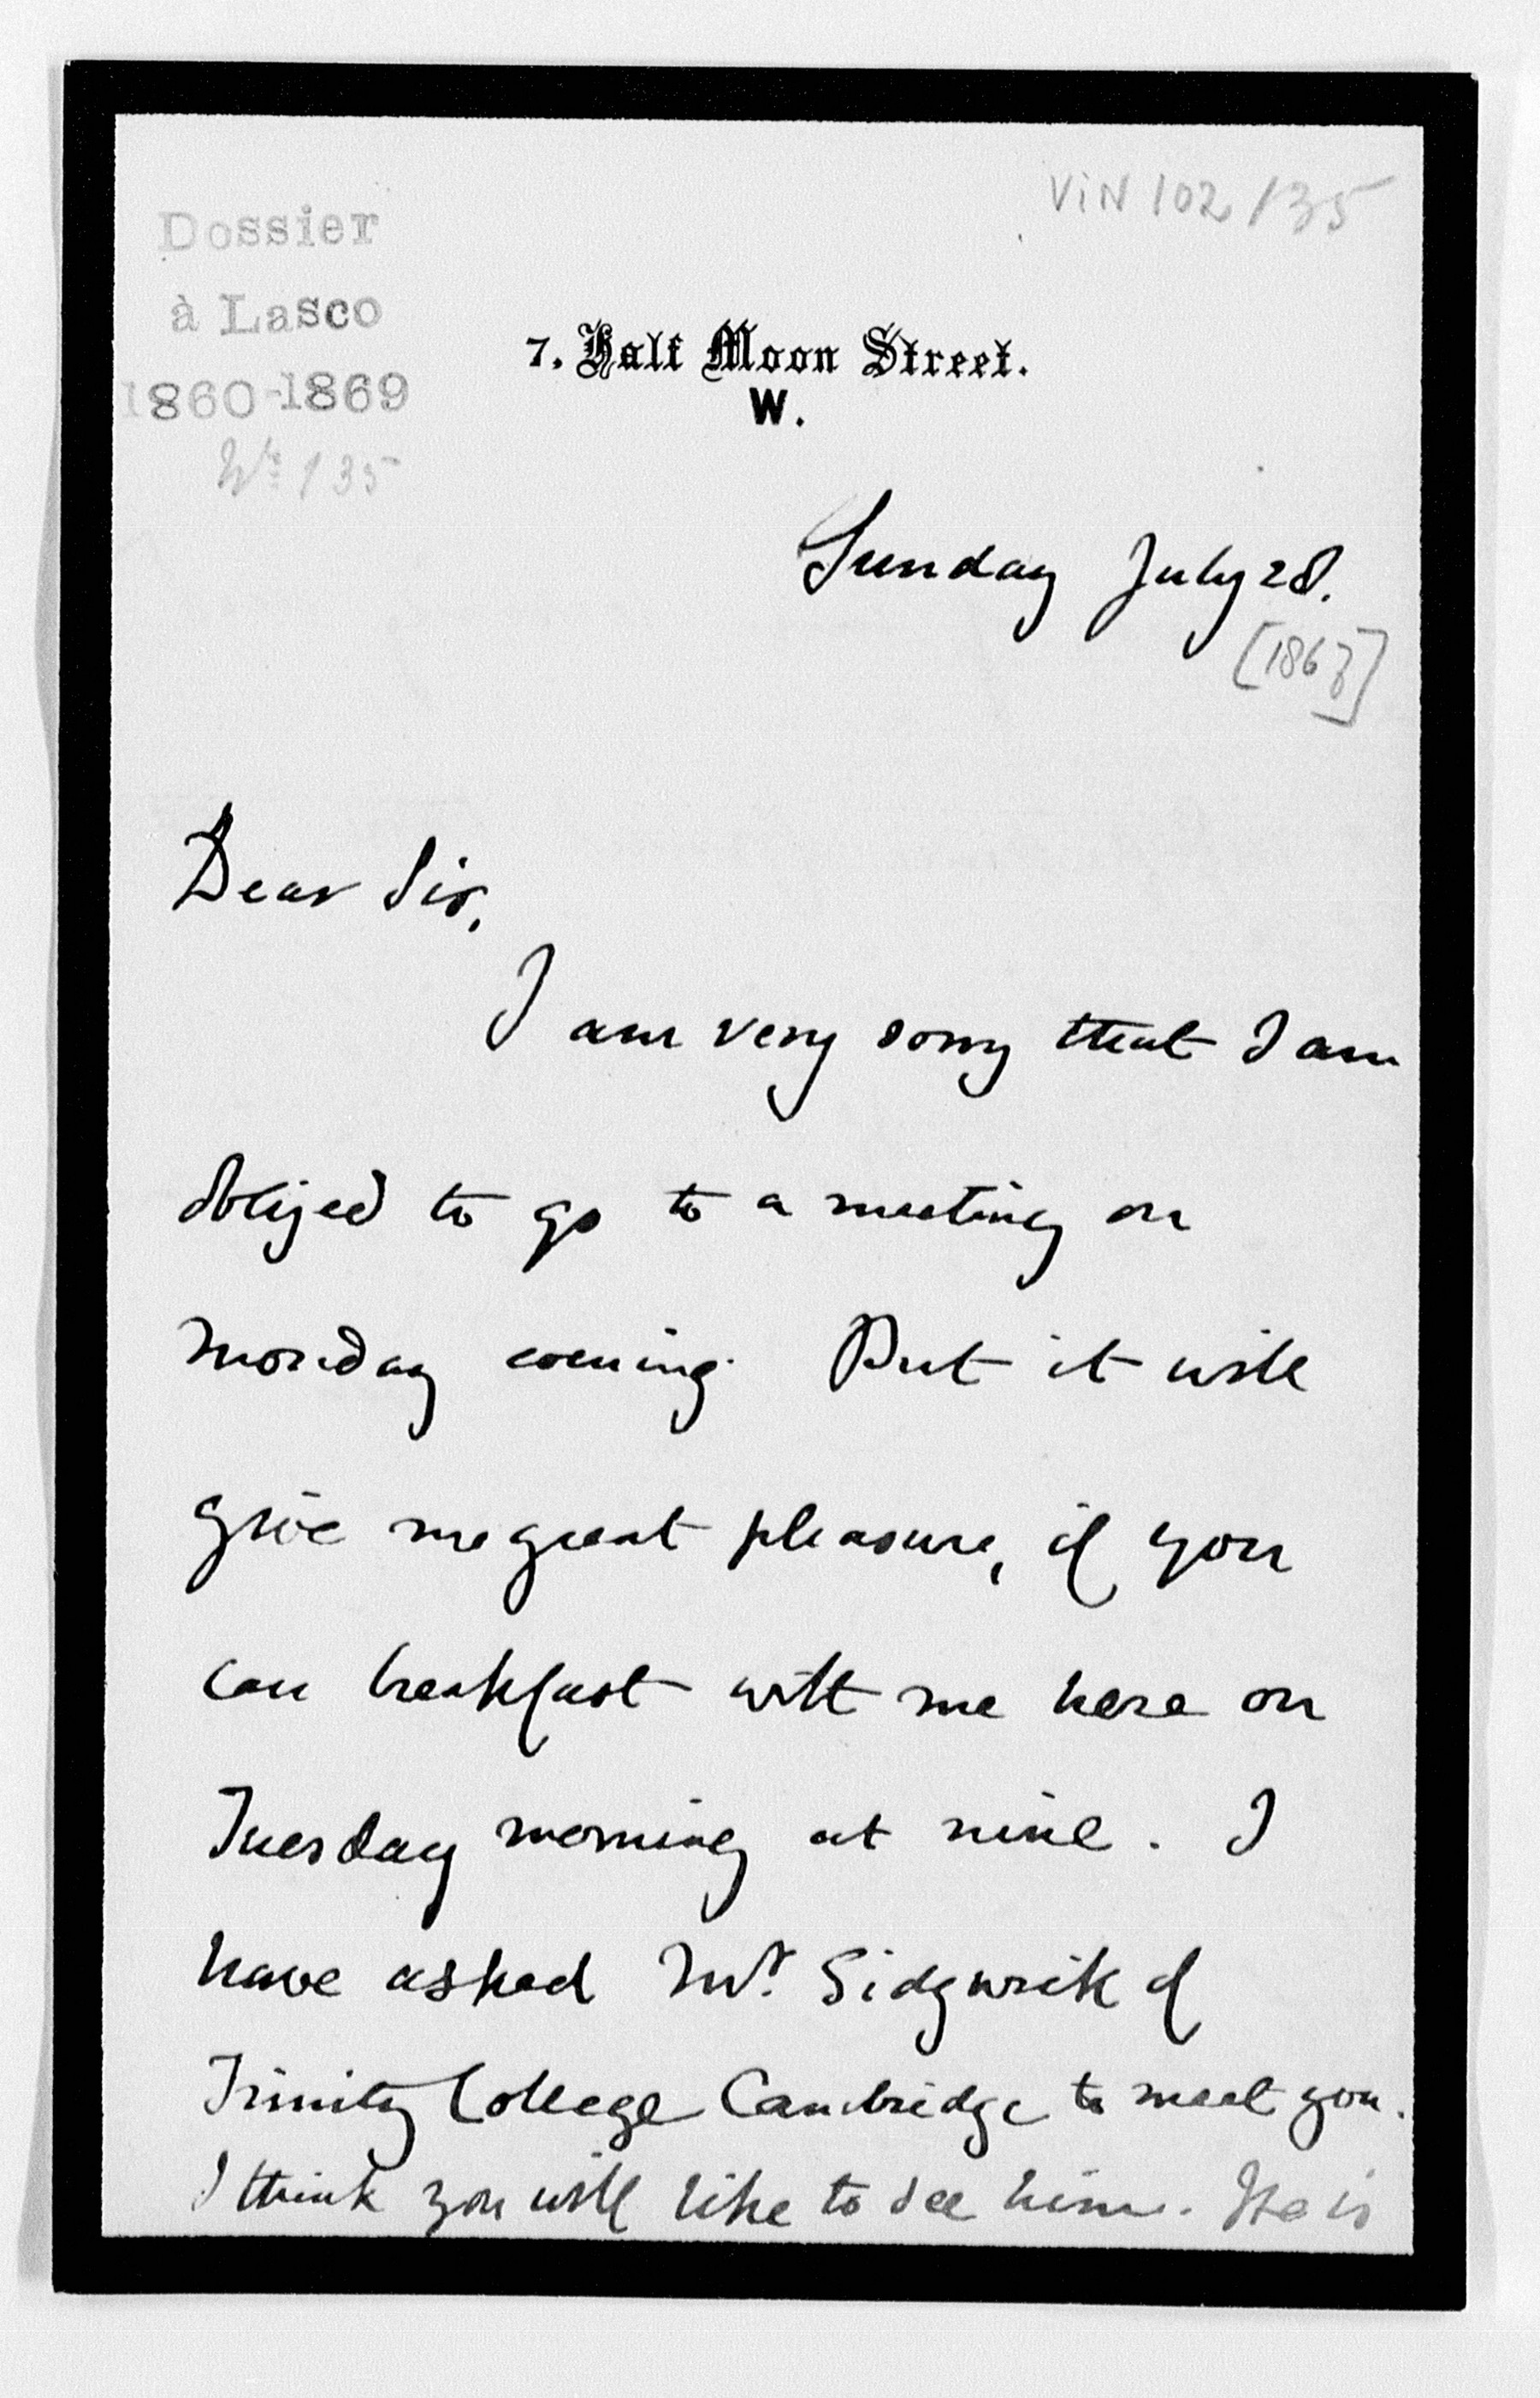 VIN 102/35
Dossier
à Lasco
1860-1869
Nº 135
7. Half Moon Street.
W.
Sunday July 28.
Dear Sir,
I am very sorry that I am
obliged to go to a meeting on
Monday evening. But it will
give me great pleasure, if you
can breakfast with me here on
Tuesday morning at nine. I
have asked Mr. Sidgwick of
Trinity College Cambridge to meet you.
I think you will like to see him. He is